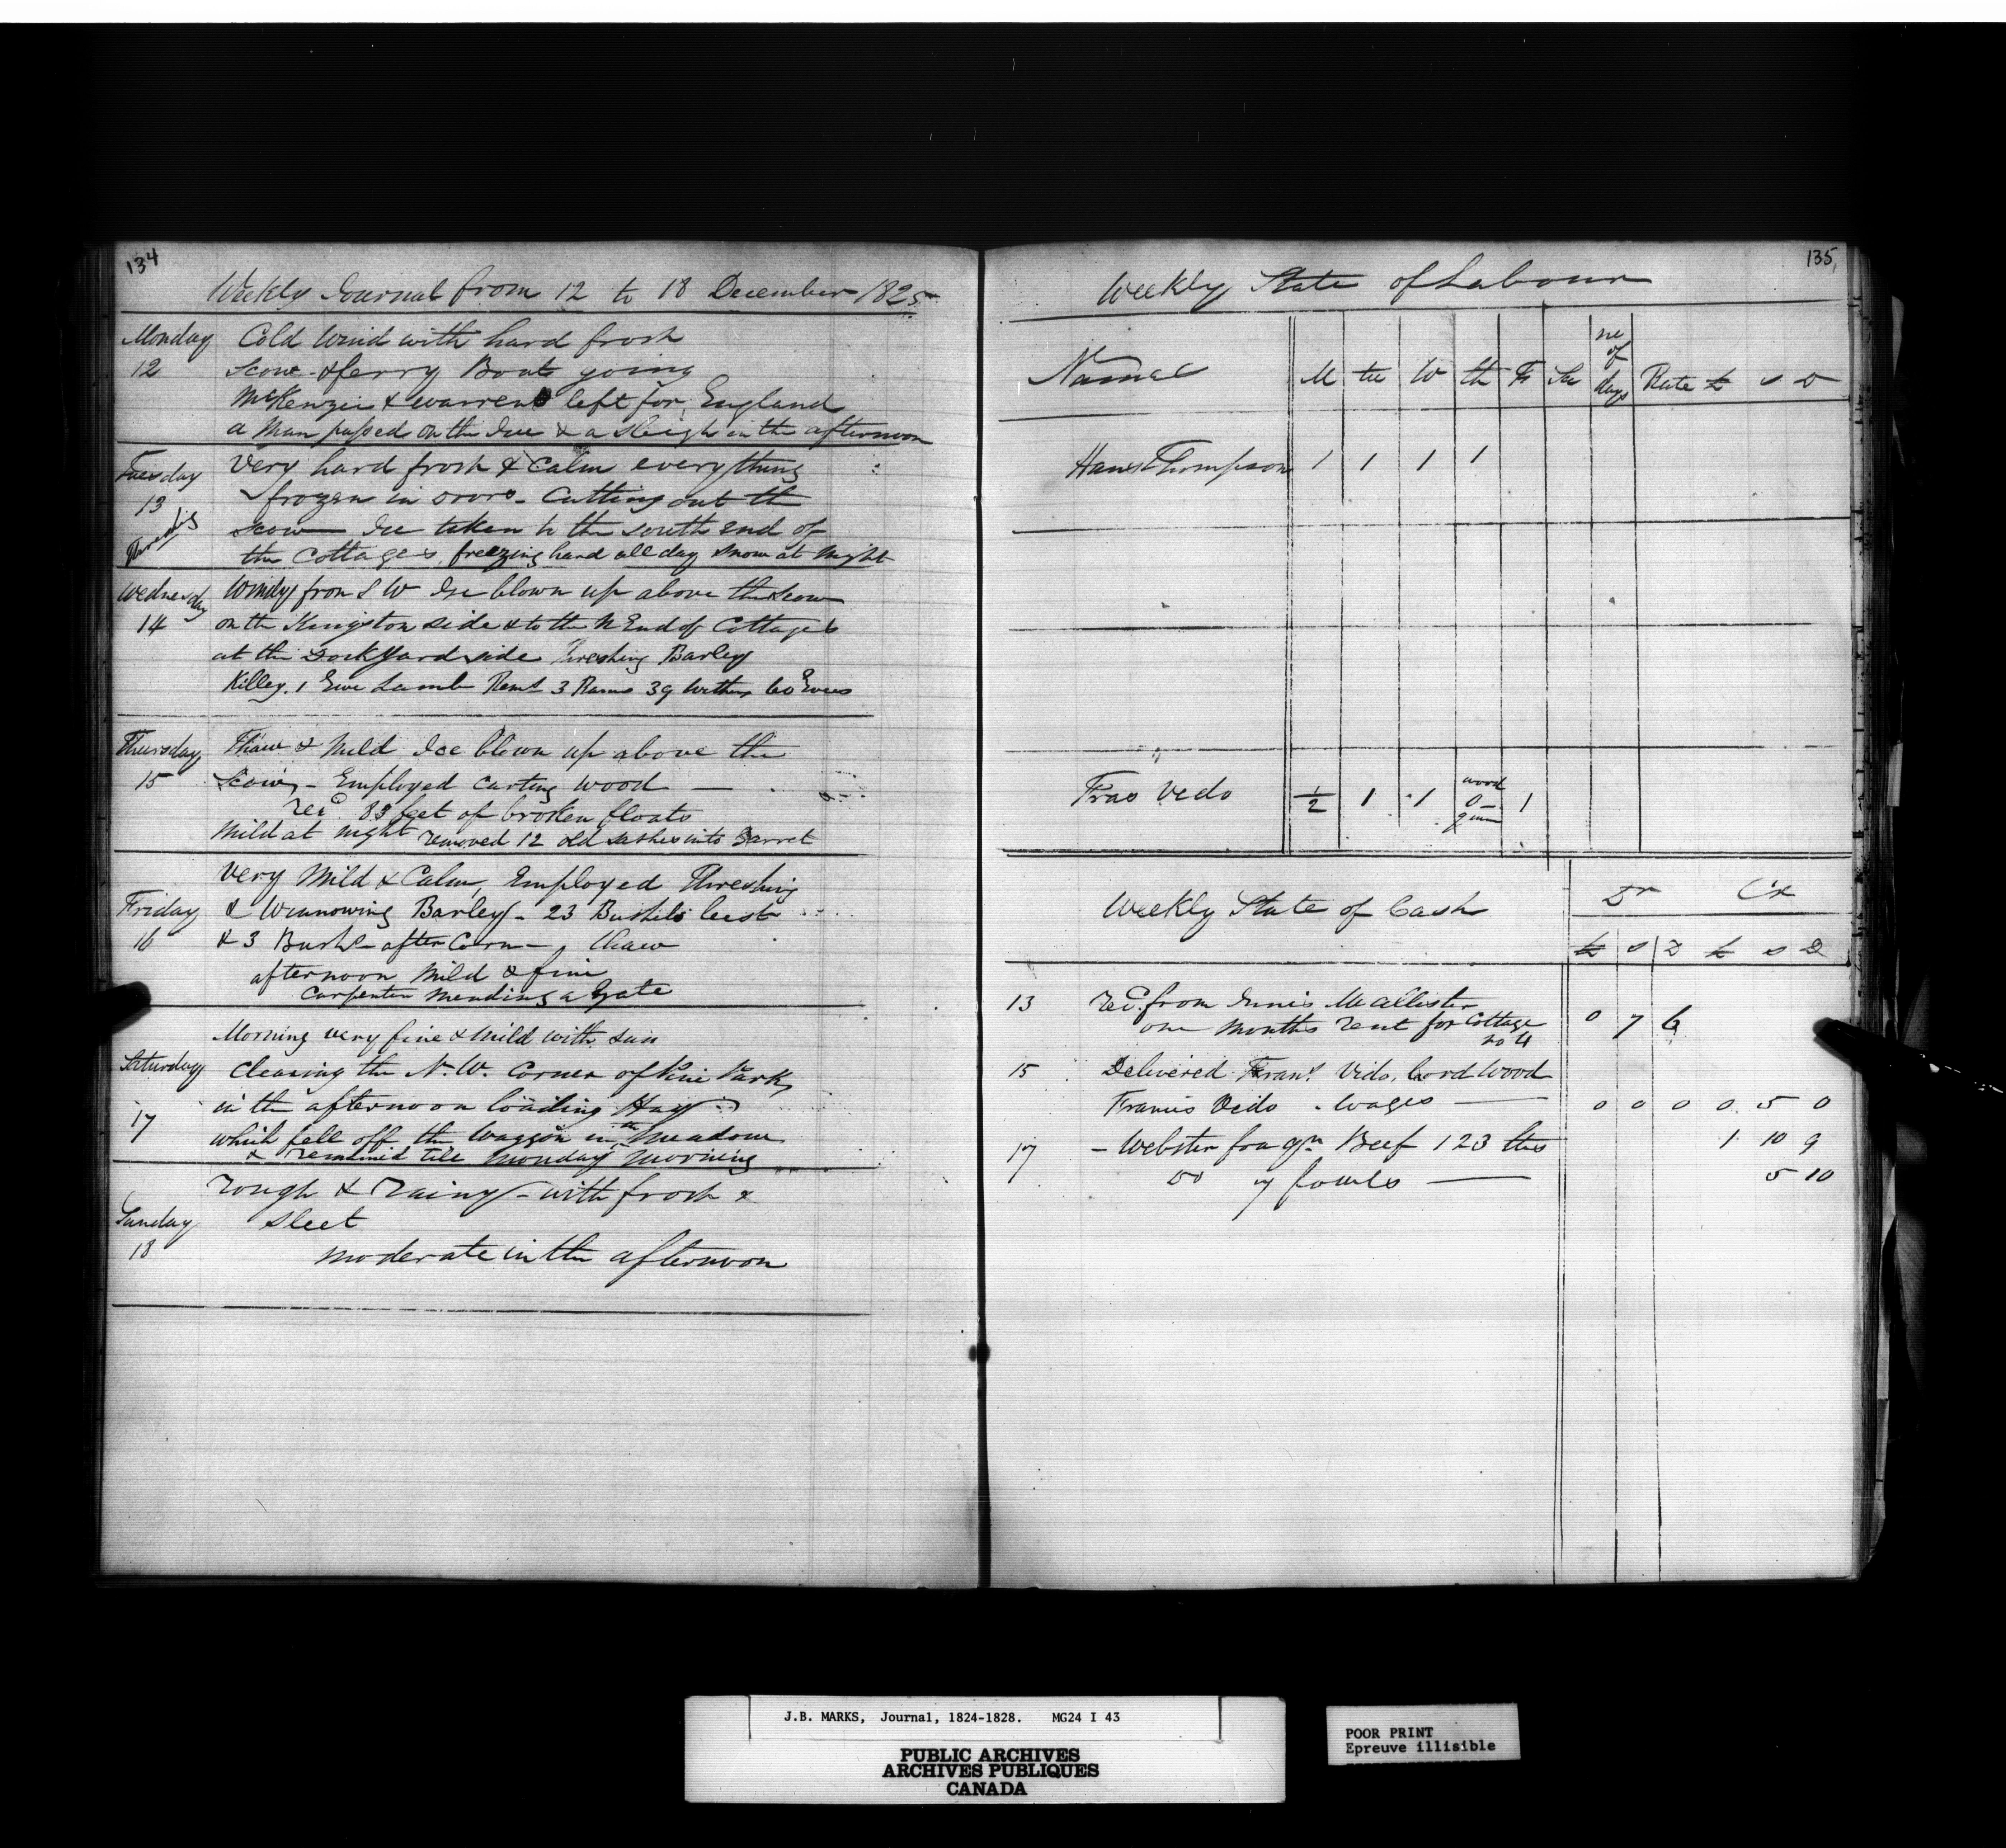 134
Weekly Journal from 12 to 18 December 1825
Monday
12
Cold Wind with hard frost
Scow & ferry Boats going
McKenzie & Warren left for England
a Man passed on the Ice & a Sleigh in the afternoon
Tuesday
13
Very hard frost & Calm everything
frozen in doors - Cutting out the
scow Ice taken to the South End of
the Cottages freezing hard all day snow at night
Wednesday
14
Windy from S W Ice blown up above the Scow
on the Kingston side & to the N End of Cottages
at the Dockyard side threshing Barley
Killed 1 Ewe Lamb Rems 3 Rams 39 Wethers 60 Ewes
Thursday
15
Thaw & Mild Ice blown up above the
Scow, - Employed Carting Wood —
Recd 83 feet of broken floats
Mild at night removed 12 old sashes into Garret
Friday
16
Very Mild & Calm, Employed Threshing
& Winnowing Barley - 23 Bushels best
& 3 Bushs after Corn -, thaw
afternoon Mild & fine
Carpenter mending a Gate
Saturday
17
Morning very fine & Mild with Sun
Clearing the N.W. Corner of Pine Park,
in the afternoon loading Hay
which fell off the Waggon in the Meadow
& remained till Monday Morning
Sunday
18
rough & rainy - with frost &
sleet
moderate in the afternoon
135
Weekly State of Labour
Names M tu W th Fr Sa no of days Rate £ s D
Hans Thompson 1 1 1 1
Fras Vedo 1/2 1 1 wood 0 1
Weekly State of Cash Dr Cr
£ s D £ s D
13 Recd from Ennis McAllister
one months rent for Cottage no 4 0 7 6
15 Delivered Frans Vido, Cord Wood
Francis Vido . Wages — 0 0 0 0 5 0
17 - Webster for qr Beef 123 lbs 1 10 9
Do fowls — 5 10
J.B. MARKS, Journal, 1824-1828. MG24 I 43
PUBLIC ARCHIVES
ARCHIVES PUBLIQUES
CANADA
POOR PRINT
Epreuve illisible